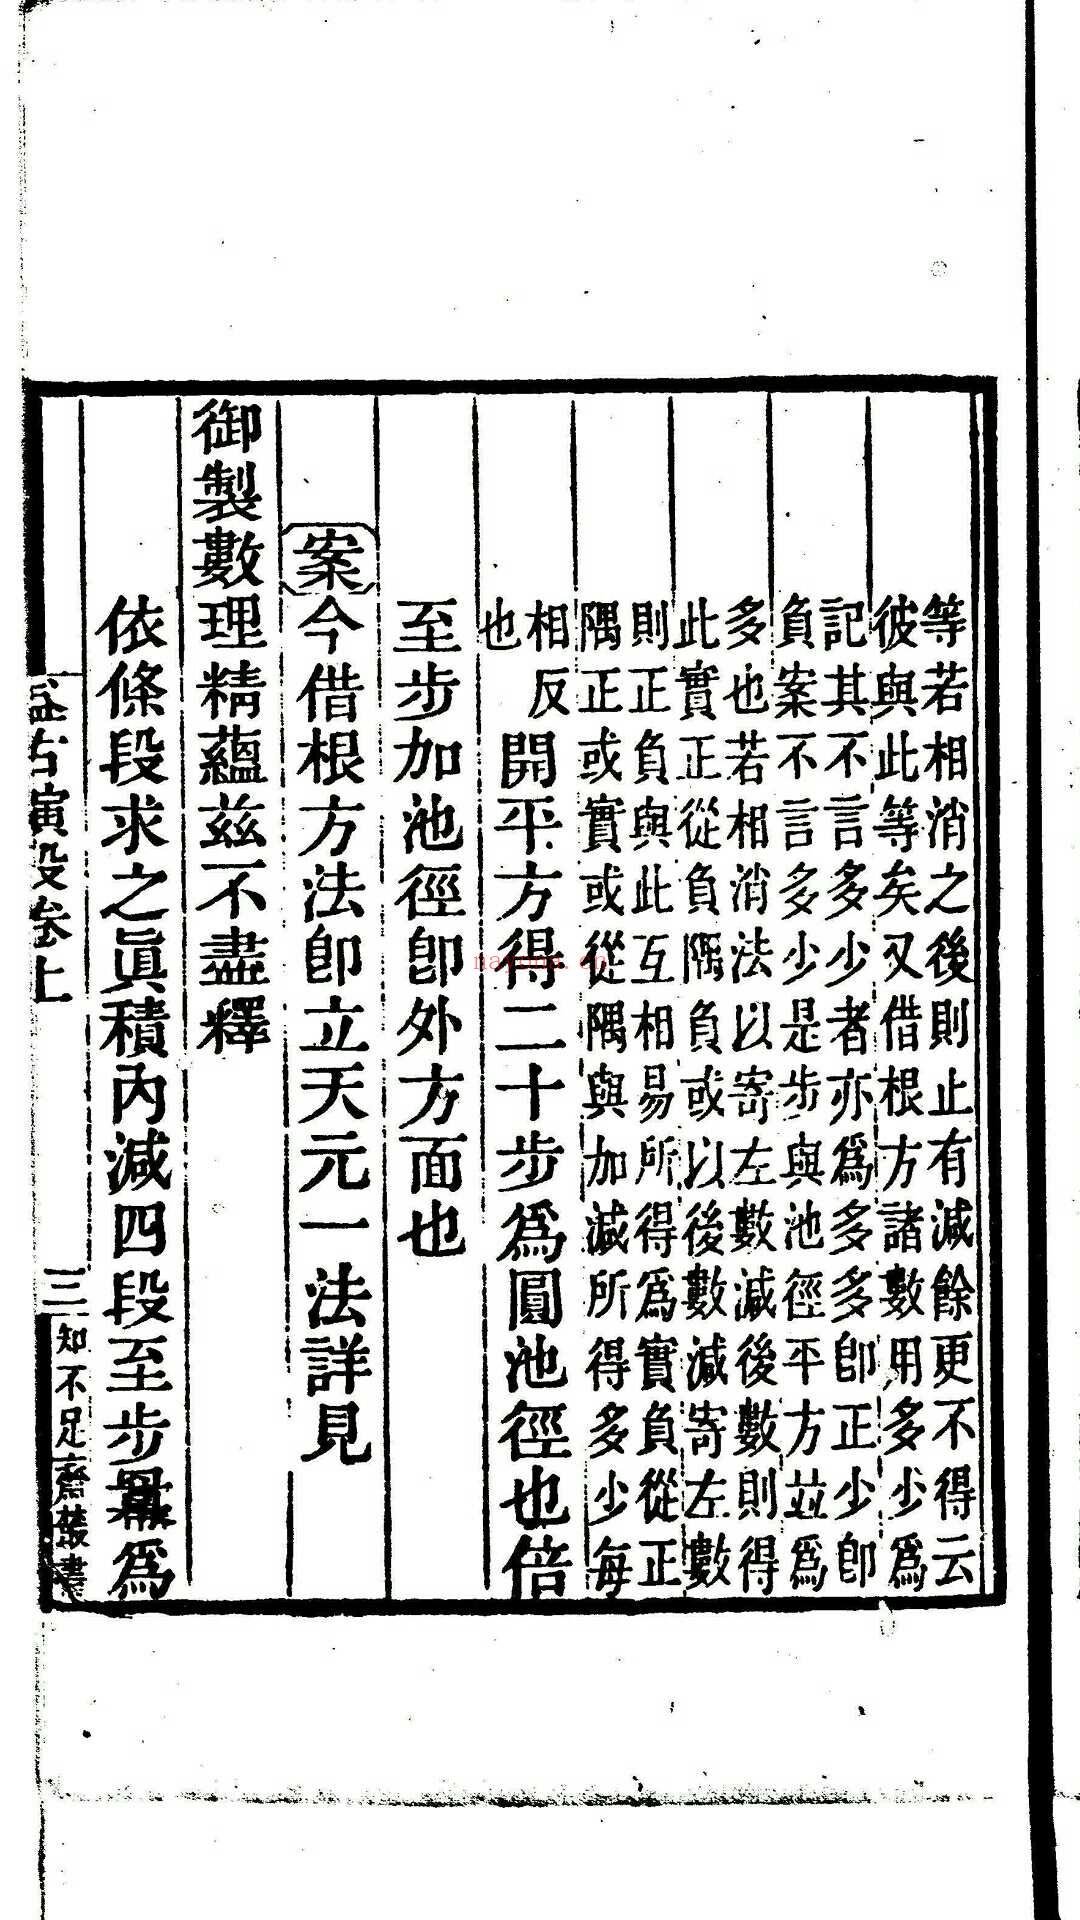 等若相消之後則止有減餘更不得云
彼與此等矣又借根方諸數用多少為
記其不言多少者亦為多多卽正少卽
負案不言多少是步與池徑平方並為
多也若相消法以寄左數減後數則得
此實正從負隅負或以後數減寄左數
則正負與此互相易所得為實負從正
隅正或實或從隅與加減所得多少每
相反
也
開平方得二十步為圓池徑也倍
至步加池徑卽外方面也
案今借根方法卽立天元一法詳見
御製數理精蘊茲不盡釋
依條段求之眞積內減四段至步冪為
益古演段卷上
三
知不足齋叢書
nayona.cn